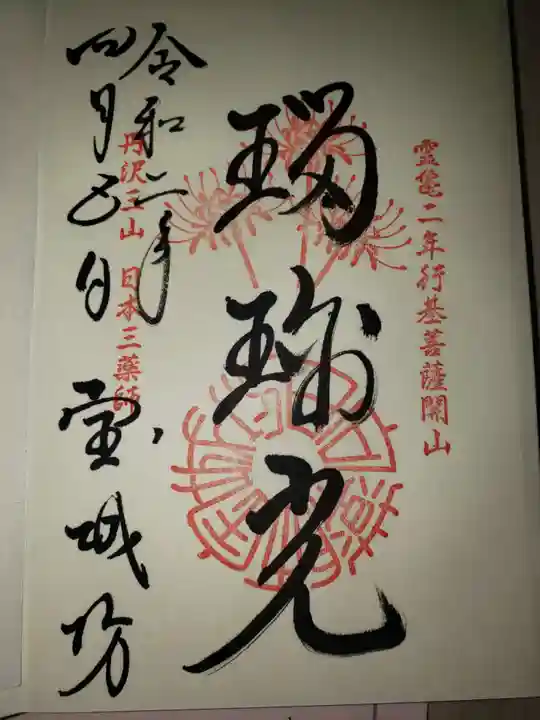 霊亀二年行基菩薩開山
瑠璃光
丹沢三山 日本三薬師
令和二年
四月五日 宝城坊